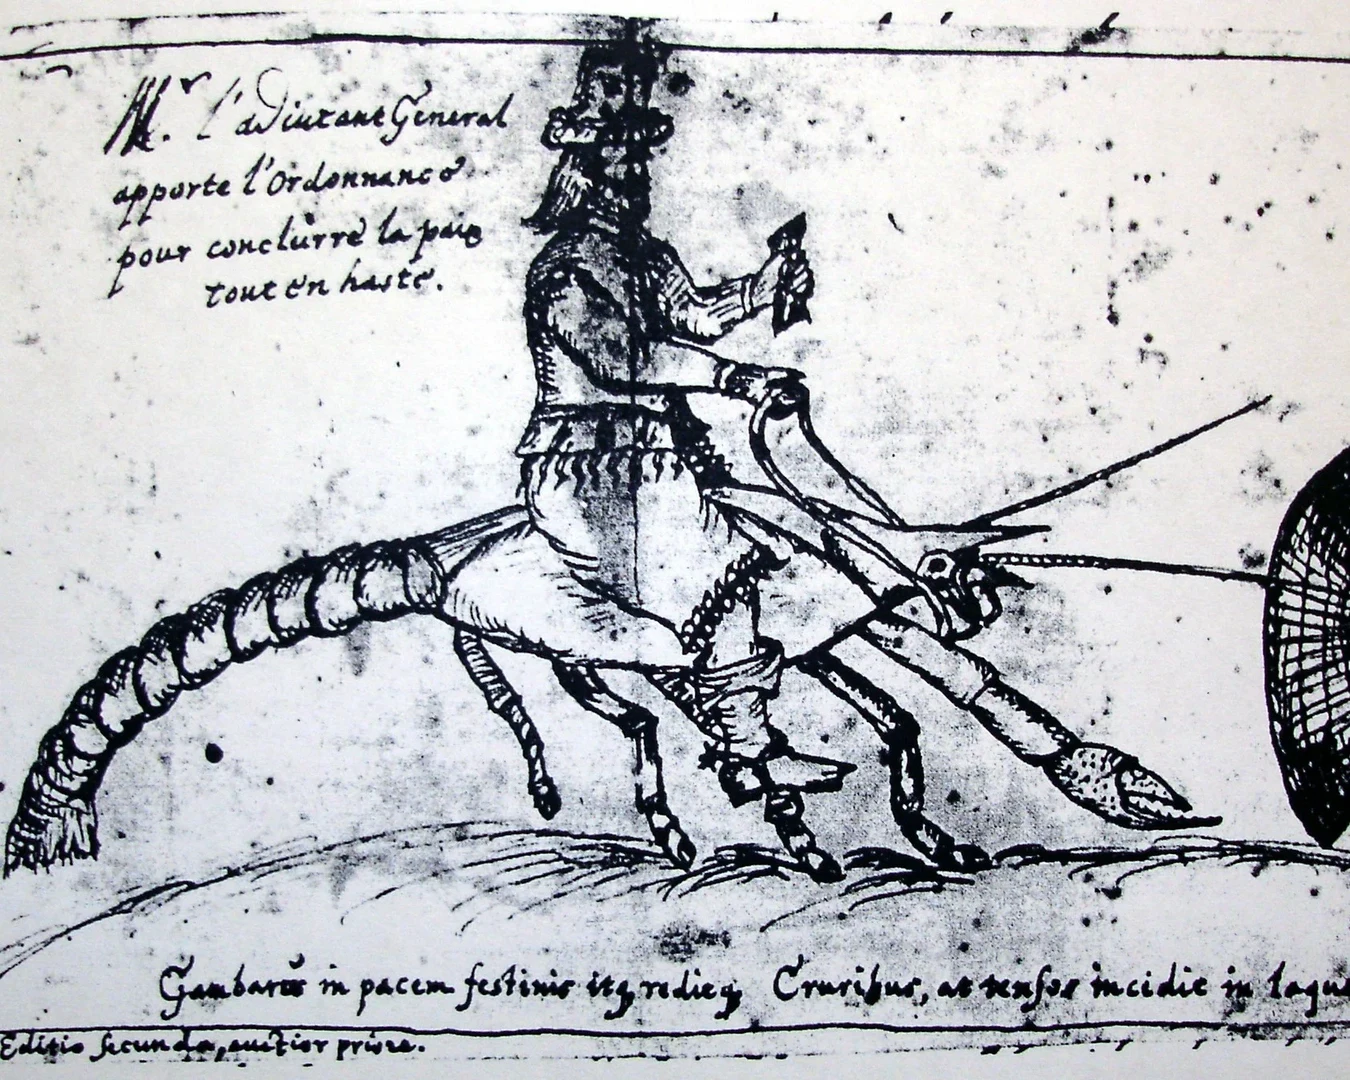 Mr. l'adiutant General
apporte l'Ordonnance
pour conclurre la paix
tout en haste.
Gambarus in pacem festinis itq reditq Cruribus, at tensos incidit in laque
Editio secunda, auctior priore.